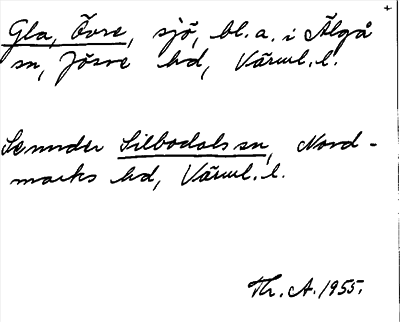 Gla, Övre, sjö, bl.a. i Älgå
sn, Jösse hd, Värml.l.
Se under Silbodals sn, Nord-
marks hd, Värml.l.
Th. A. 1955.